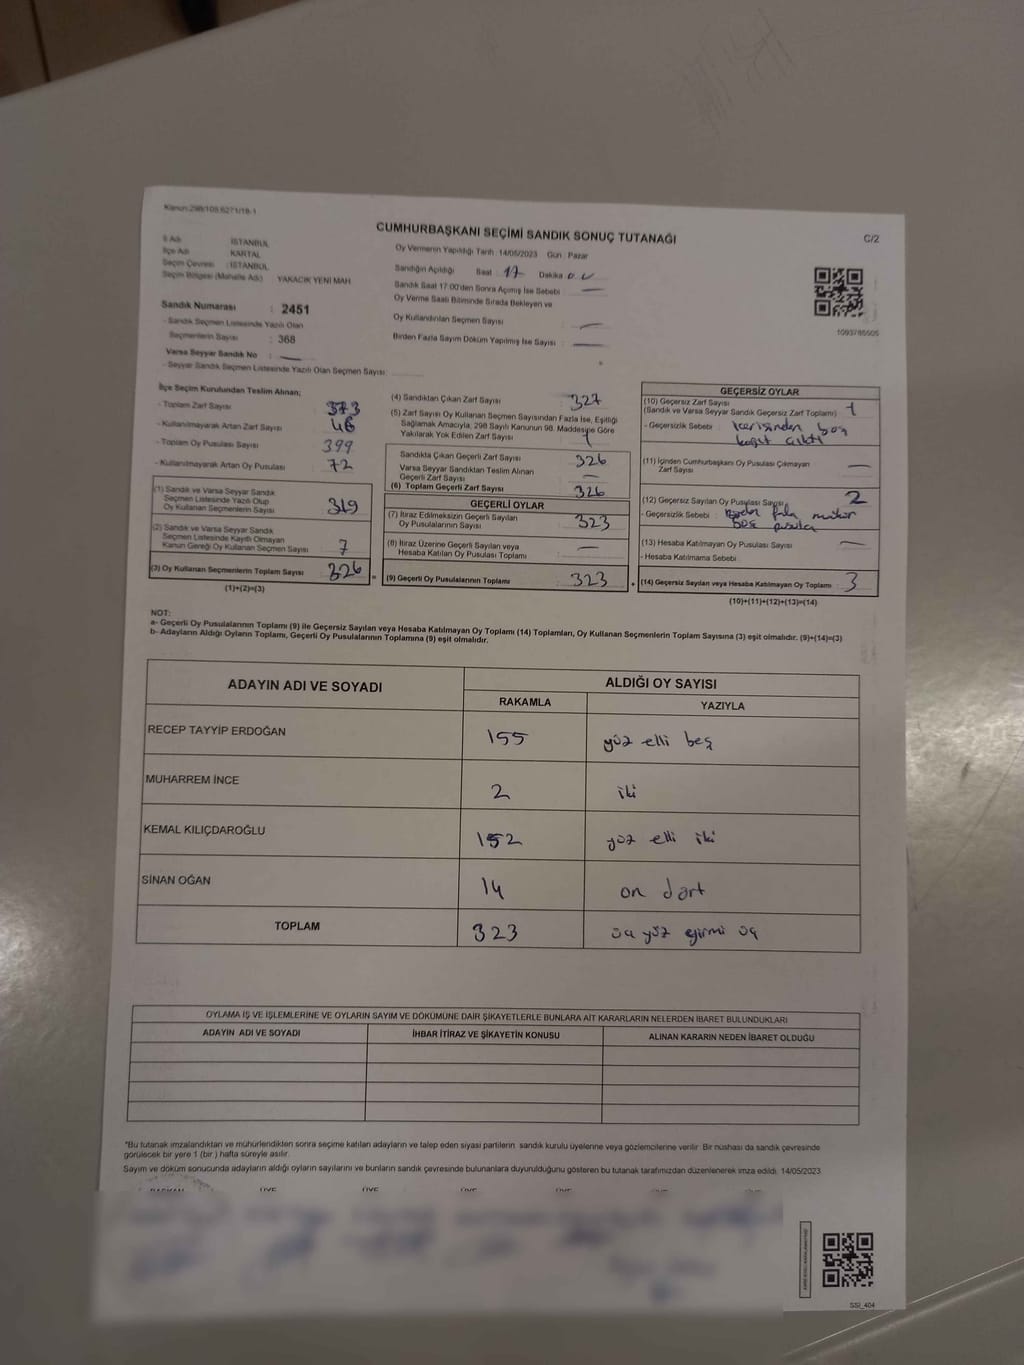 Kanun:298/105,6271/18-1
CUMHURBAŞKANI SEÇİMİ SANDIK SONUÇ TUTANAĞI
C/2
İl Adı : İSTANBUL
İlçe Adı : KARTAL
Seçim Çevresi : İSTANBUL
Seçim Bölgesi (Mahalle Adı) : YAKACIK YENİ MAH.
Sandık Numarası : 2451
- Sandık Seçmen Listesinde Yazılı Olan
Seçmenlerin Sayısı : 368
Varsa Seyyar Sandık No :
- Seyyar Sandık Seçmen Listesinde Yazılı Olan Seçmen Sayısı:
Oy Vermenin Yapıldığı Tarih :14/05/2023 Gün : Pazar
Sandığın Açıldığı Saat 17 Dakika
Sandık Saat 17:00'den Sonra Açılmış İse Sebebi :
Oy Verme Saati Bitiminde Sırada Bekleyen ve
Oy Kullandırılan Seçmen Sayısı :
Birden Fazla Sayım Döküm Yapılmış İse Sayısı :
1093785505
İlçe Seçim Kurulundan Teslim Alınan;
- Toplam Zarf Sayısı : 373
- Kullanılmayarak Artan Zarf Sayısı : 46
- Toplam Oy Pusulası Sayısı : 399
- Kullanılmayarak Artan Oy Pusulası : 72
(1) Sandık ve Varsa Seyyar Sandık
Seçmen Listesinde Yazılı Olup
Oy Kullanan Seçmenlerin Sayısı : 319
(2) Sandık ve Varsa Seyyar Sandık
Seçmen Listesinde Kayıtlı Olmayan
Kanun Gereği Oy Kullanan Seçmen Sayısı : 7
(3) Oy Kullanan Seçmenlerin Toplam Sayısı : 326
(1)+(2)=(3)
(4) Sandıktan Çıkan Zarf Sayısı : 327
(5) Zarf Sayısı Oy Kullanan Seçmen Sayısından Fazla İse, Eşitliği
Sağlamak Amacıyla, 298 Sayılı Kanunun 98. Maddesine Göre
Yakılarak Yok Edilen Zarf Sayısı : 1
Sandıkta Çıkan Geçerli Zarf Sayısı : 326
Varsa Seyyar Sandıktan Teslim Alınan
Geçerli Zarf Sayısı :
(6) Toplam Geçerli Zarf Sayısı : 326
GEÇERLİ OYLAR
(7) İtiraz Edilmeksizin Geçerli Sayılan
Oy Pusulalarının Sayısı : 323
(8) İtiraz Üzerine Geçerli Sayılan veya
Hesaba Katılan Oy Pusulası Toplamı :
(9) Geçerli Oy Pusulalarının Toplamı : 323
GEÇERSİZ OYLAR
(10) Geçersiz Zarf Sayısı
(Sandık ve Varsa Seyyar Sandık Geçersiz Zarf Toplamı) : 1
- Geçersizlik Sebebi : İçerisinden boş
kağıt çıktı
(11) İçinden Cumhurbaşkanı Oy Pusulası Çıkmayan
Zarf Sayısı :
(12) Geçersiz Sayılan Oy Pusulası Sayısı : 2
- Geçersizlik Sebebi : Birden fazla mühür
boş pusula
(13) Hesaba Katılmayan Oy Pusulası Sayısı :
- Hesaba Katılmama Sebebi :
(14) Geçersiz Sayılan veya Hesaba Katılmayan Oy Toplamı : 3
(10)+(11)+(12)+(13)=(14)
NOT:
a- Geçerli Oy Pusulalarının Toplamı (9) ile Geçersiz Sayılan veya Hesaba Katılmayan Oy Toplamı (14) Toplamları, Oy Kullanan Seçmenlerin Toplam Sayısına (3) eşit olmalıdır. (9)+(14)=(3)
b- Adayların Aldığı Oyların Toplamı, Geçerli Oy Pusulalarının Toplamına (9) eşit olmalıdır.
ADAYIN ADI VE SOYADI
ALDIĞI OY SAYISI
RAKAMLA YAZIYLA
RECEP TAYYİP ERDOĞAN 155 yüz elli beş
MUHARREM İNCE 2 iki
KEMAL KILIÇDAROĞLU 152 yüz elli iki
SİNAN OĞAN 14 on dört
TOPLAM 323 üç yüz yirmi üç
OYLAMA İŞ VE İŞLEMLERİNE VE OYLARIN SAYIM VE DÖKÜMÜNE DAİR ŞİKAYETLERLE BUNLARA AİT KARARLARIN NELERDEN İBARET BULUNDUKLARI
ADAYIN ADI VE SOYADI İHBAR İTİRAZ VE ŞİKAYETİN KONUSU ALINAN KARARIN NEDEN İBARET OLDUĞU
*Bu tutanak imzalandıktan ve mühürlendikten sonra seçime katılan adayların ve talep eden siyasi partilerin sandık kurulu üyelerine veya gözlemcilerine verilir. Bir nüshası da sandık çevresinde
görülecek bir yere 1 (bir ) hafta süreyle asılır.
Sayım ve döküm sonucunda adayların aldığı oyların sayılarını ve bunların sandık çevresinde bulunanlara duyurulduğunu gösteren bu tutanak tarafımızdan düzenlenerek imza edildi. 14/05/2023
BAŞKAN ÜYE ÜYE ÜYE ÜYE ÜYE ÜYE
SSİ_404